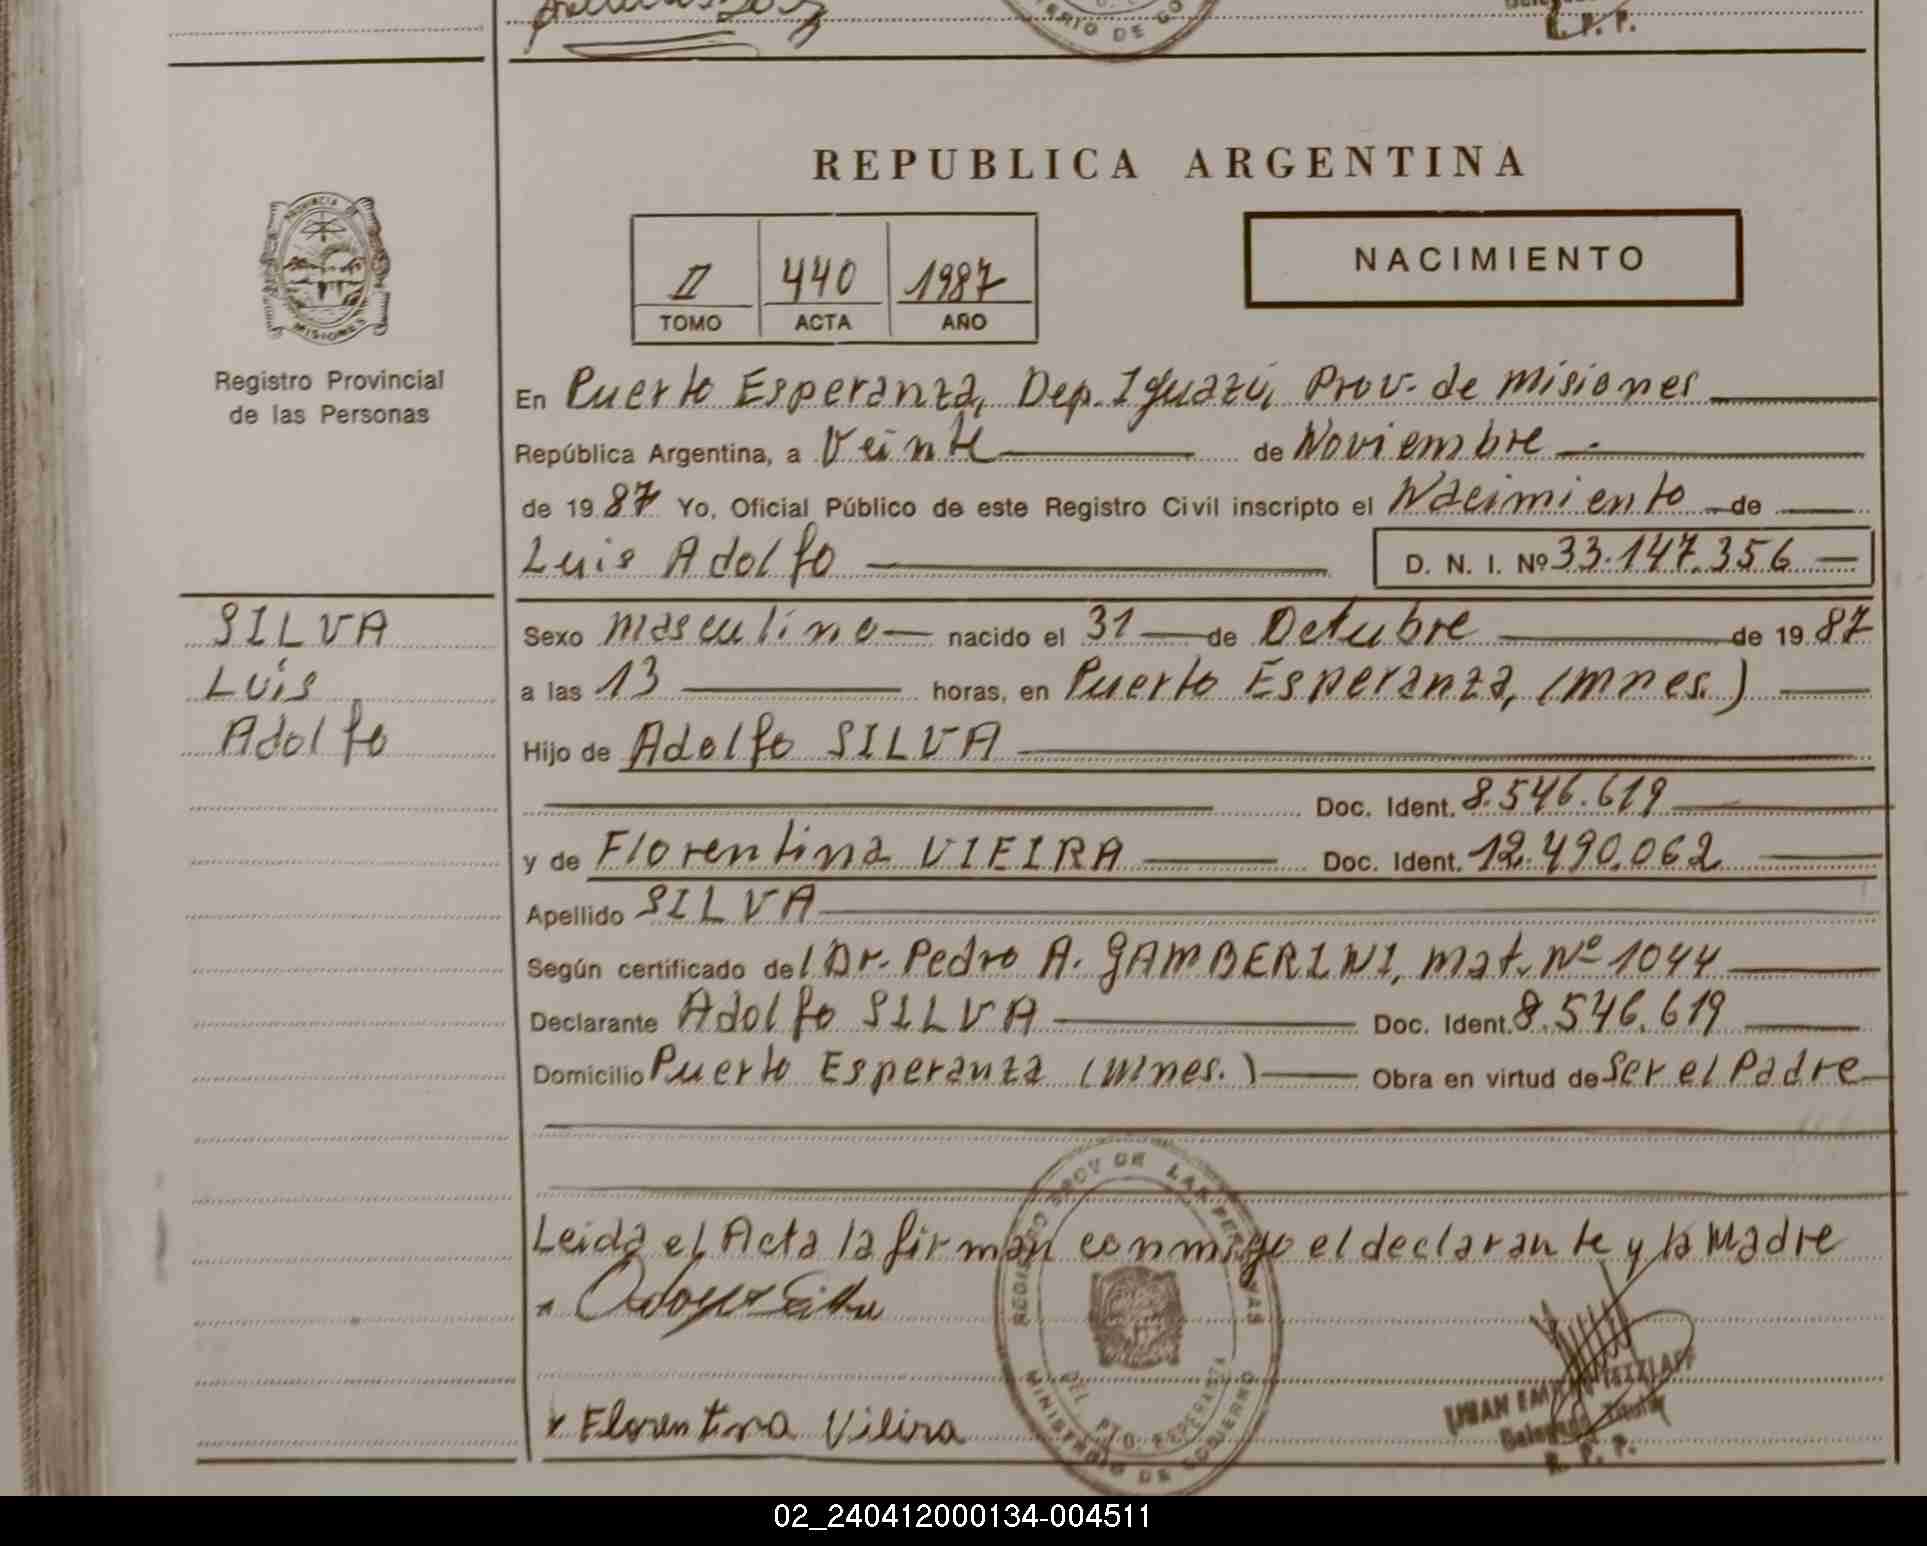 TERIO DE GO
R. P. P.
REPUBLICA ARGENTINA
PROVINCIA DE
MISIONES
Registro Provincial
de las Personas
II 440 1987
TOMO ACTA AÑO
NACIMIENTO
En Puerto Esperanza, Dep. Iguazú, Prov. de Misiones
República Argentina, a Veinte de Noviembre
de 1987 Yo, Oficial Público de este Registro Civil inscripto el Nacimiento de
Luis Adolfo D. N. I. Nº 33.147.356
SILVA
Luis
Adolfo
Sexo masculino nacido el 31 de Octubre de 1987
a las 13 horas, en Puerto Esperanza, (Mnes.)
Hijo de Adolfo SILVA
Doc. Ident. 8.546.619
y de Florentina VIEIRA Doc. Ident. 12.490.062
Apellido SILVA
Según certificado del Dr. Pedro A. GAMBERINI, mat. Nº 1044
Declarante Adolfo SILVA Doc. Ident. 8.546.619
Domicilio Puerto Esperanza (Mnes.) Obra en virtud de Ser el Padre
Leida el Acta la firman conmigo el declarante y la Madre
REGISTRO PROV DE LAS PERSONAS
DEL. PTO. ESPERANZA
MINISTERIO DE GOBIERNO
x Florentina Vieira
Delegado Titular
R. P. P.
02_240412000134-004511